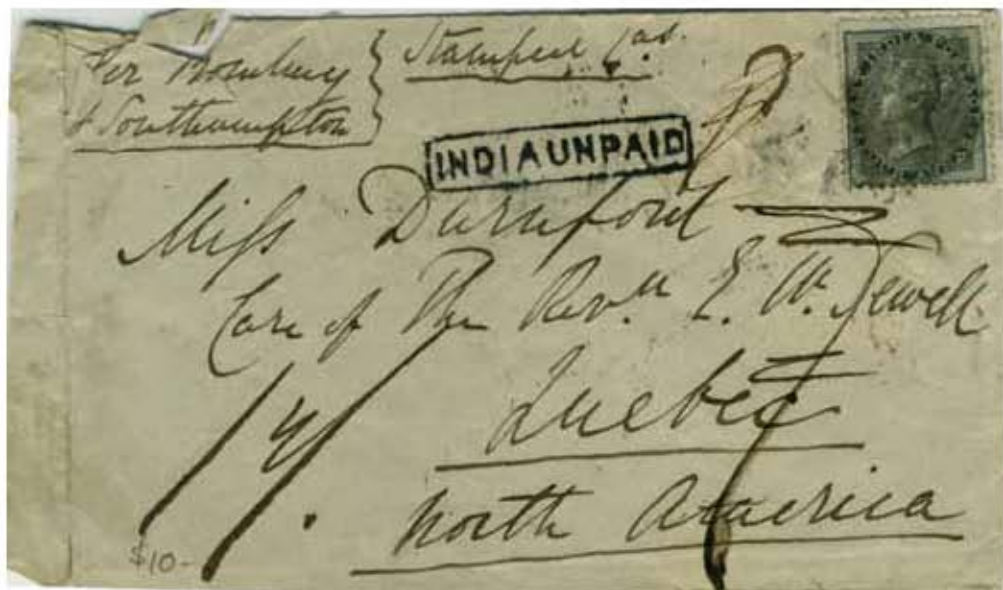 Per Bombay
& Southampton
Stamped 6 as.
INDIA UNPAID
Miss Durnford
Care of The Revd. E. W. Sewell
Quebec
North America
$10-